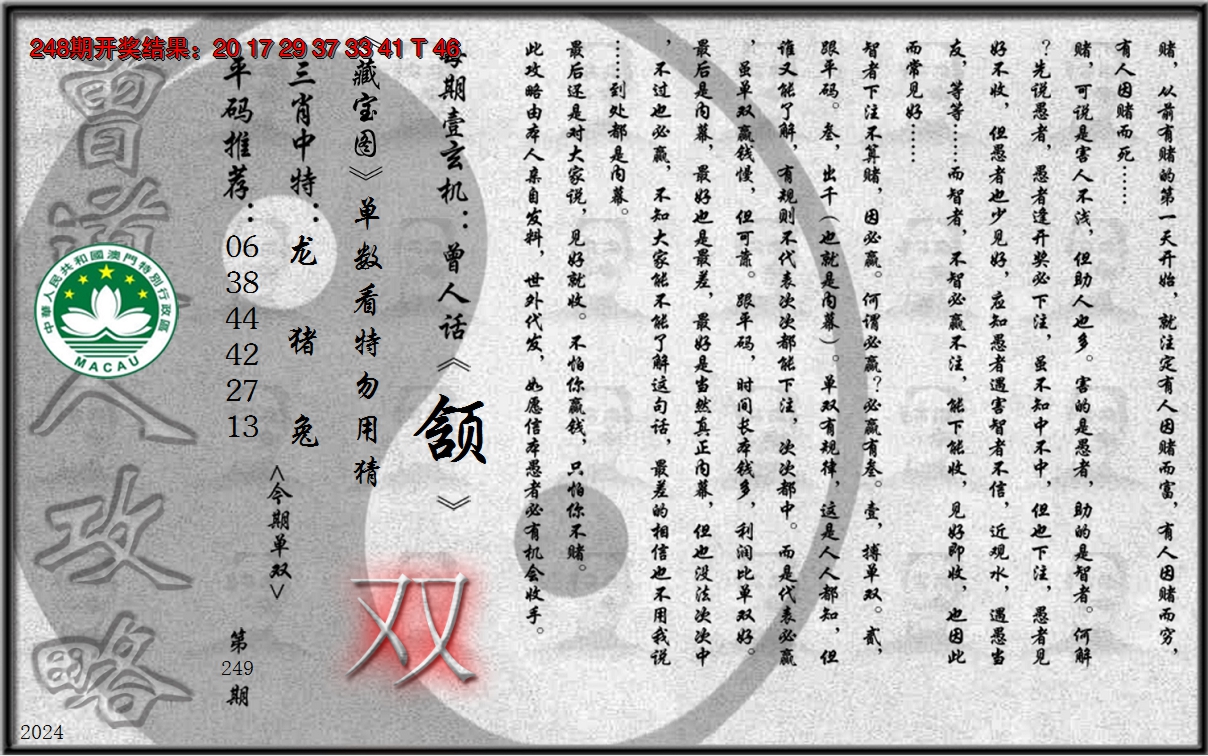 248期开奖结果：20 17 29 37 33 41 T 46
赌，从前有赌的第一天开始，就注定有人因赌而富，有人因赌而穷，
有人因赌而死……
赌，可说是害人不浅，但助人也多。害的是愚者，助的是智者。何解
？先说愚者，愚者逢开奖必下注，虽不知中不中，但也下注，愚者见
好不收，但愚者也少见好，应知愚者遇害智者不信，近观水，遇愚当
友，等等……而智者，不智必赢不注，能下能收，见好即收，也因此
而常见好……
智者下注不算赌，因必赢。何谓必赢？必赢有叁。壹，搏单双。贰，
跟平码。叁，出千（也就是内幕）。单双有规律，这是人人都知，但
谁又能了解，有规则不代表次次都能下注，次次都中。而是代表必赢
，虽单双赢钱慢，但可靠。跟平码，时间长本钱多，利润比单双好。
最后是内幕，最好也是最差，最好是当然真正内幕，但也没法次次中
，不过也必赢，不知大家能不能了解这句话，最差的相信也不用我说
……到处都是内幕。
最后还是对大家说，见好就收。不怕你赢钱，只怕你不赌。
此攻略由本人亲自发料，世外代发，如愿信本愚者必有机会收手。
每期壹玄机：曾人话《颔》
《藏宝图》单数看特勿用猜
双
三肖中特：龙 猪 兔
<今期单双>
平码推荐：
06
38
44
42
27
13
第
249
期
曾道人攻略
中華人民共和國澳門特別行政區
MACAU
2024